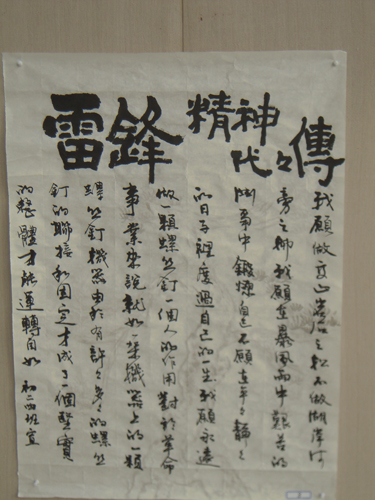 雷鋒精神代々傳
我願做高山岩石之松不做湖岸河
旁之柳我願在暴風雨中艱苦的
鬥爭中鍛煉自己不願在平々靜々
的日子裡度過自己的一生我願永遠
做一顆螺丝釘一個人的作用對於革命
事業來說就如一架機器上的一顆
螺丝釘機器由於有許々多々的螺丝
釘的聯接和固定才成了一個堅實
的整體才能運轉自如 初二四班宣